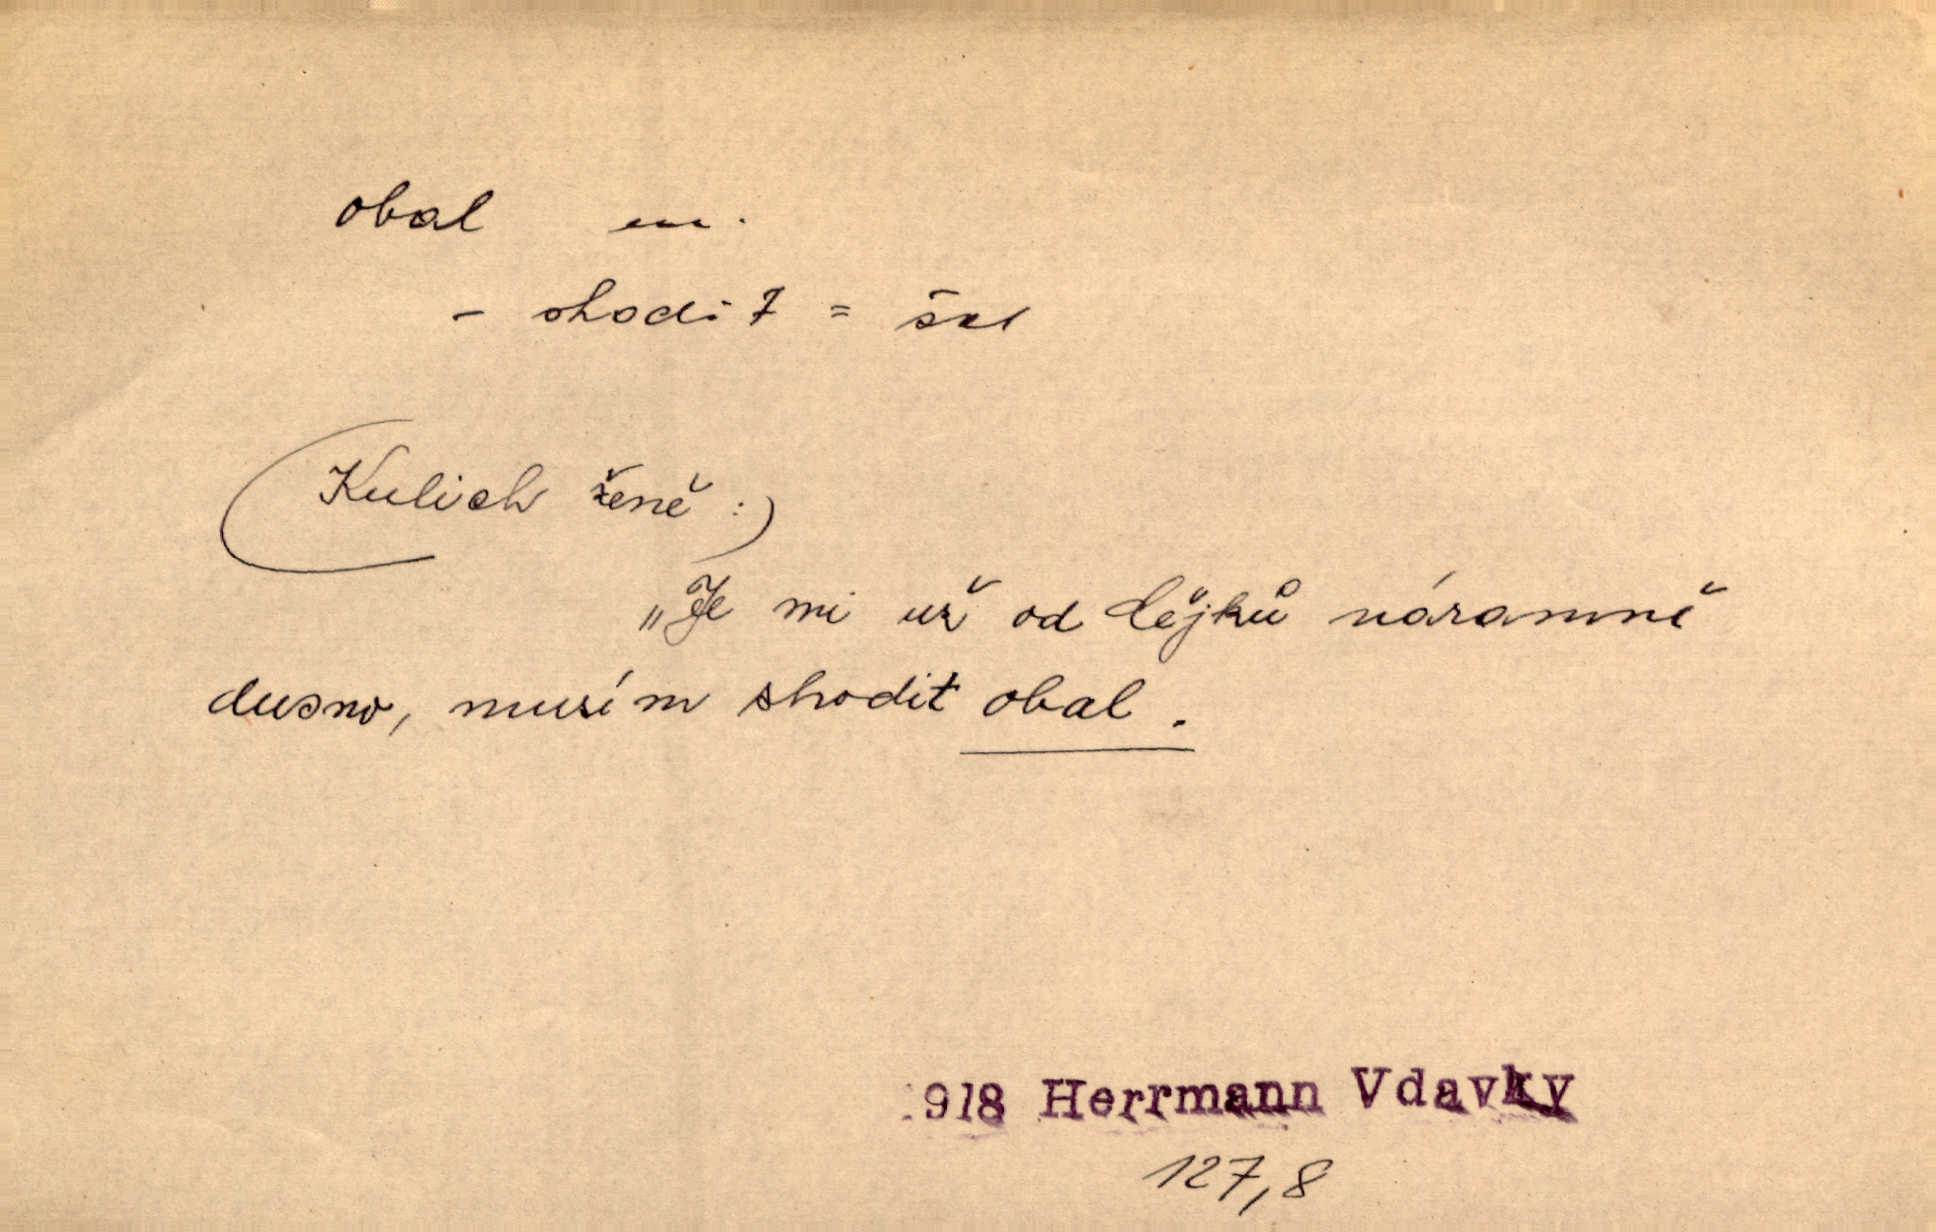 obal m.
- shodit = šat
(Kulich ženě :)
„Je mi už od lejků náramně
dusno, musím shodit obal.
918 Herrmann Vdavky
127,8